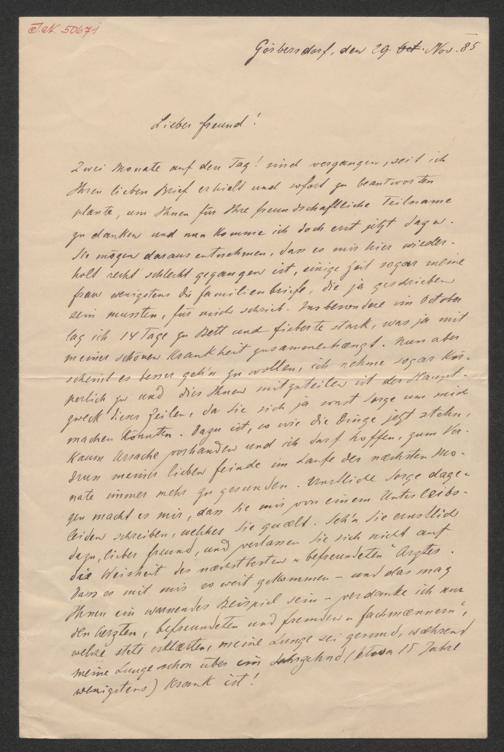 I.N. 50671
Görbersdorf, den 29. Oct. Nov. 85
Lieber Freund!
Zwei Monate auf den Tag! sind vergangen, seit ich
Ihren lieben Brief erhielt und sofort zu beantworten
plante, um Ihnen für Ihre freundschaftliche Teilname
zu danken und nun komme ich doch erst jetzt dazu.
Sie mögen daraus entnehmen, dass es mir hier wieder-
holt recht schlecht gegangen ist, einige Zeit sogar meine
Frau wenigstens die Familienbriefe, die ja geschrieben
sein mussten, für mich schrieb. Insbesondere im October
lag ich 14 Tage zu Bett und fieberte stark, was ja mit
meiner schönen Krankheit zusammenhängt. Nun aber
scheint es besser gehn zu wollen, ich nehme sogar kör-
perlich zu und dies Ihnen mitzuteilen ist der Haupt-
zweck dieser Zeilen, da Sie sich ja sonst Sorge um mich
machen könnten. Dazu ist, so wie die Dinge jetzt stehn,
kaum Ursache vorhanden und ich darf hoffen, zum Ver-
druss meiner lieben Feinde im Laufe der nächsten Mo-
nate immer mehr zu gesunden. Ernstliche Sorge dage-
gen macht es mir, dass Sie mir von einem Unterleibs-
leiden schreiben, welches Sie quält. Seh'n Sie ernstlich
dazu, lieber Freund, und verlassen Sie sich nicht auf
die Weisheit des nächstbesten „befreundeten" Arztes.
Dass es mit mir so weit gekommen – und das mag
Ihnen ein warnendes Beispiel sein – verdanke ich nur
den Aerzten, befreundeten und fremden „Fachmännern",
welche stets erklärten, meine Lunge sei gesund, während
meine Lunge schon über ein Jahrzehnd (etwa 15 Jahre
wenigstens) krank ist!